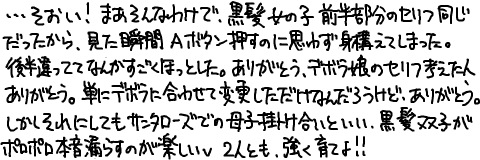 …そおい!まあそんなわけで、黒髪女の子前半部分のセリフ同じ
だったから、見た瞬間Aボタン押すのに思わず身構えてしまった。
後半違っててなんかすごくほっとした。ありがとう、デボラ娘のセリフ考えた人
ありがとう。単にデボラに合わせて変更しただけなんだろうけど、ありがとう。
しかしそれにしてもサンタローズでの母子掛け合いといい、黒髪双子が
ポロポロ本音漏らすのが楽しいv 2人とも、強く育てよ!!